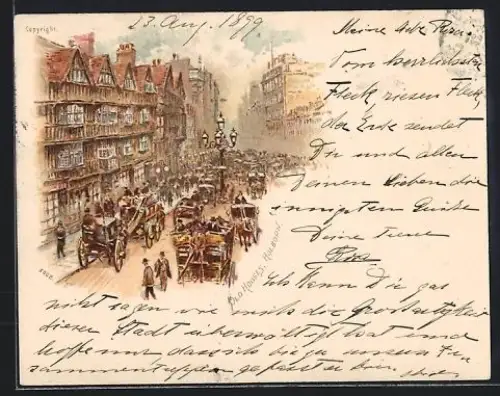 Copyright.
23. Aug. 1899
Meine liebe
Vom herrlichsten
Fleck, riesen Fleck
der Erde sendet
Dir und allen
Deinen Lieben die
innigsten Grüsse
Deine treue
Rosa
OLD HOUSES, HOLBORN.
Ich kann Dir gar
nicht sagen wie mich die Grossartigkeit
dieser Stadt überwältigt hat und
hoffe nur, dass ich bis zu unserem Zu-
sammentreffen gefasst